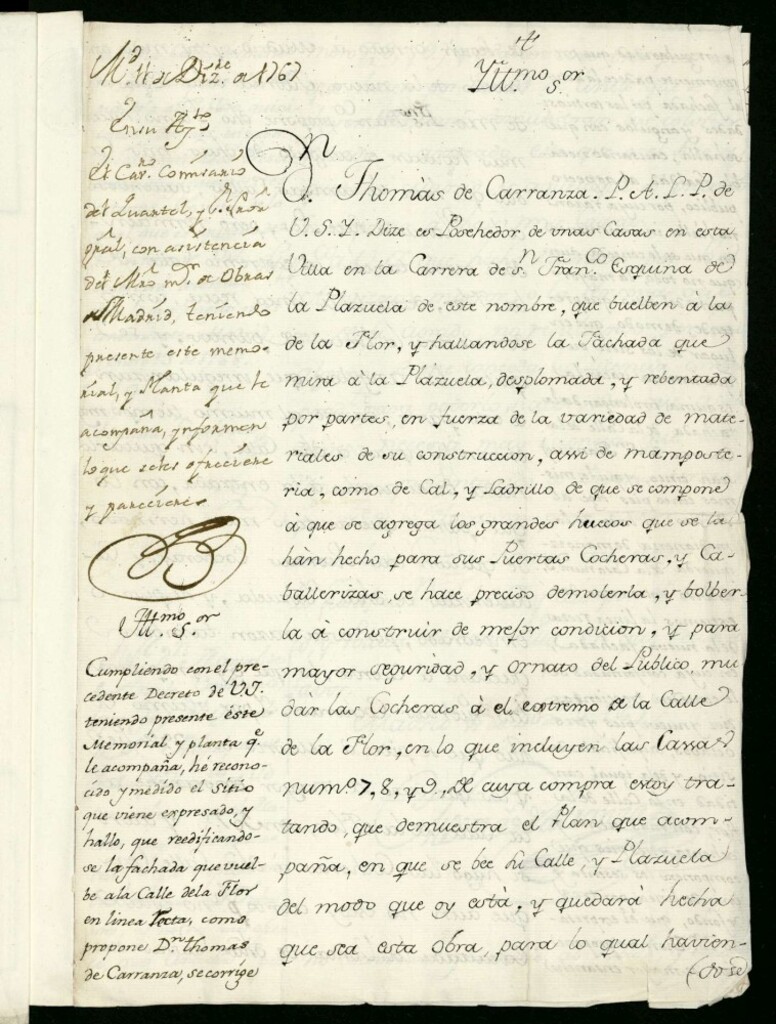 Md. 11 de Dizre. de 1767
En su Ayto.
El Cavo. Comisario
del Quartel, y
gral, con asistencia
del Mro mr. de Obras
de Madrid, teniendo
presente este memo-
rial, y Planta que le
acompaña, ynformen
lo que seles ofreciere
y pareciere
Yttmo. sor
Cumpliendo con el pre-
cedente Decreto de V.I.
teniendo presente éste
Memorial y planta qe.
le acompaña, hé recono-
cido y medido el sitio
que viene expresado, y
hallo, que reedificando-
se la fachada que vuel-
be ala Calle dela Flor
en linea recta, como
propone Dn. thomas
de Carranza, se corrige
Yttmo. sor
Dn. Thomàs de Carranza. P. A. L. P. de
V. S. Y. Dize es Posehedor de unas Casas en esta
Villa en la Carrera de sn. Franco. Esquina de
la Plazuela de este nombre, que buelben à la
de la Flor, y hallandose la Fachada que
mira à la Plazuela, desplomada, y rebentada
por partes, en fuerza de la variedad de mate-
riales de su construccion, assi de mamposte-
ria, como de Cal, y Ladrillo de que se compone
à que se agrega los grandes huecos que se la
hàn hecho para sus Puertas Cocheras, y Ca-
ballerizas, se hace preciso demolerla, y bolber-
la à construir de mejor condicion, y para
mayor seguridad, y ornato del Publico, mu-
dàr las Cocheras à el extremo de la Calle
de la Flor, en lo que incluyen las Cassas
numo. 7, 8, y 9, de cuya compra estoy tra-
tando, que demuestra el Plan que acom-
paña, en que se bee su Calle, y Plazuela
del modo que oy està, y quedarà hecha
que sea esta obra, para lo qual havien-
(dose